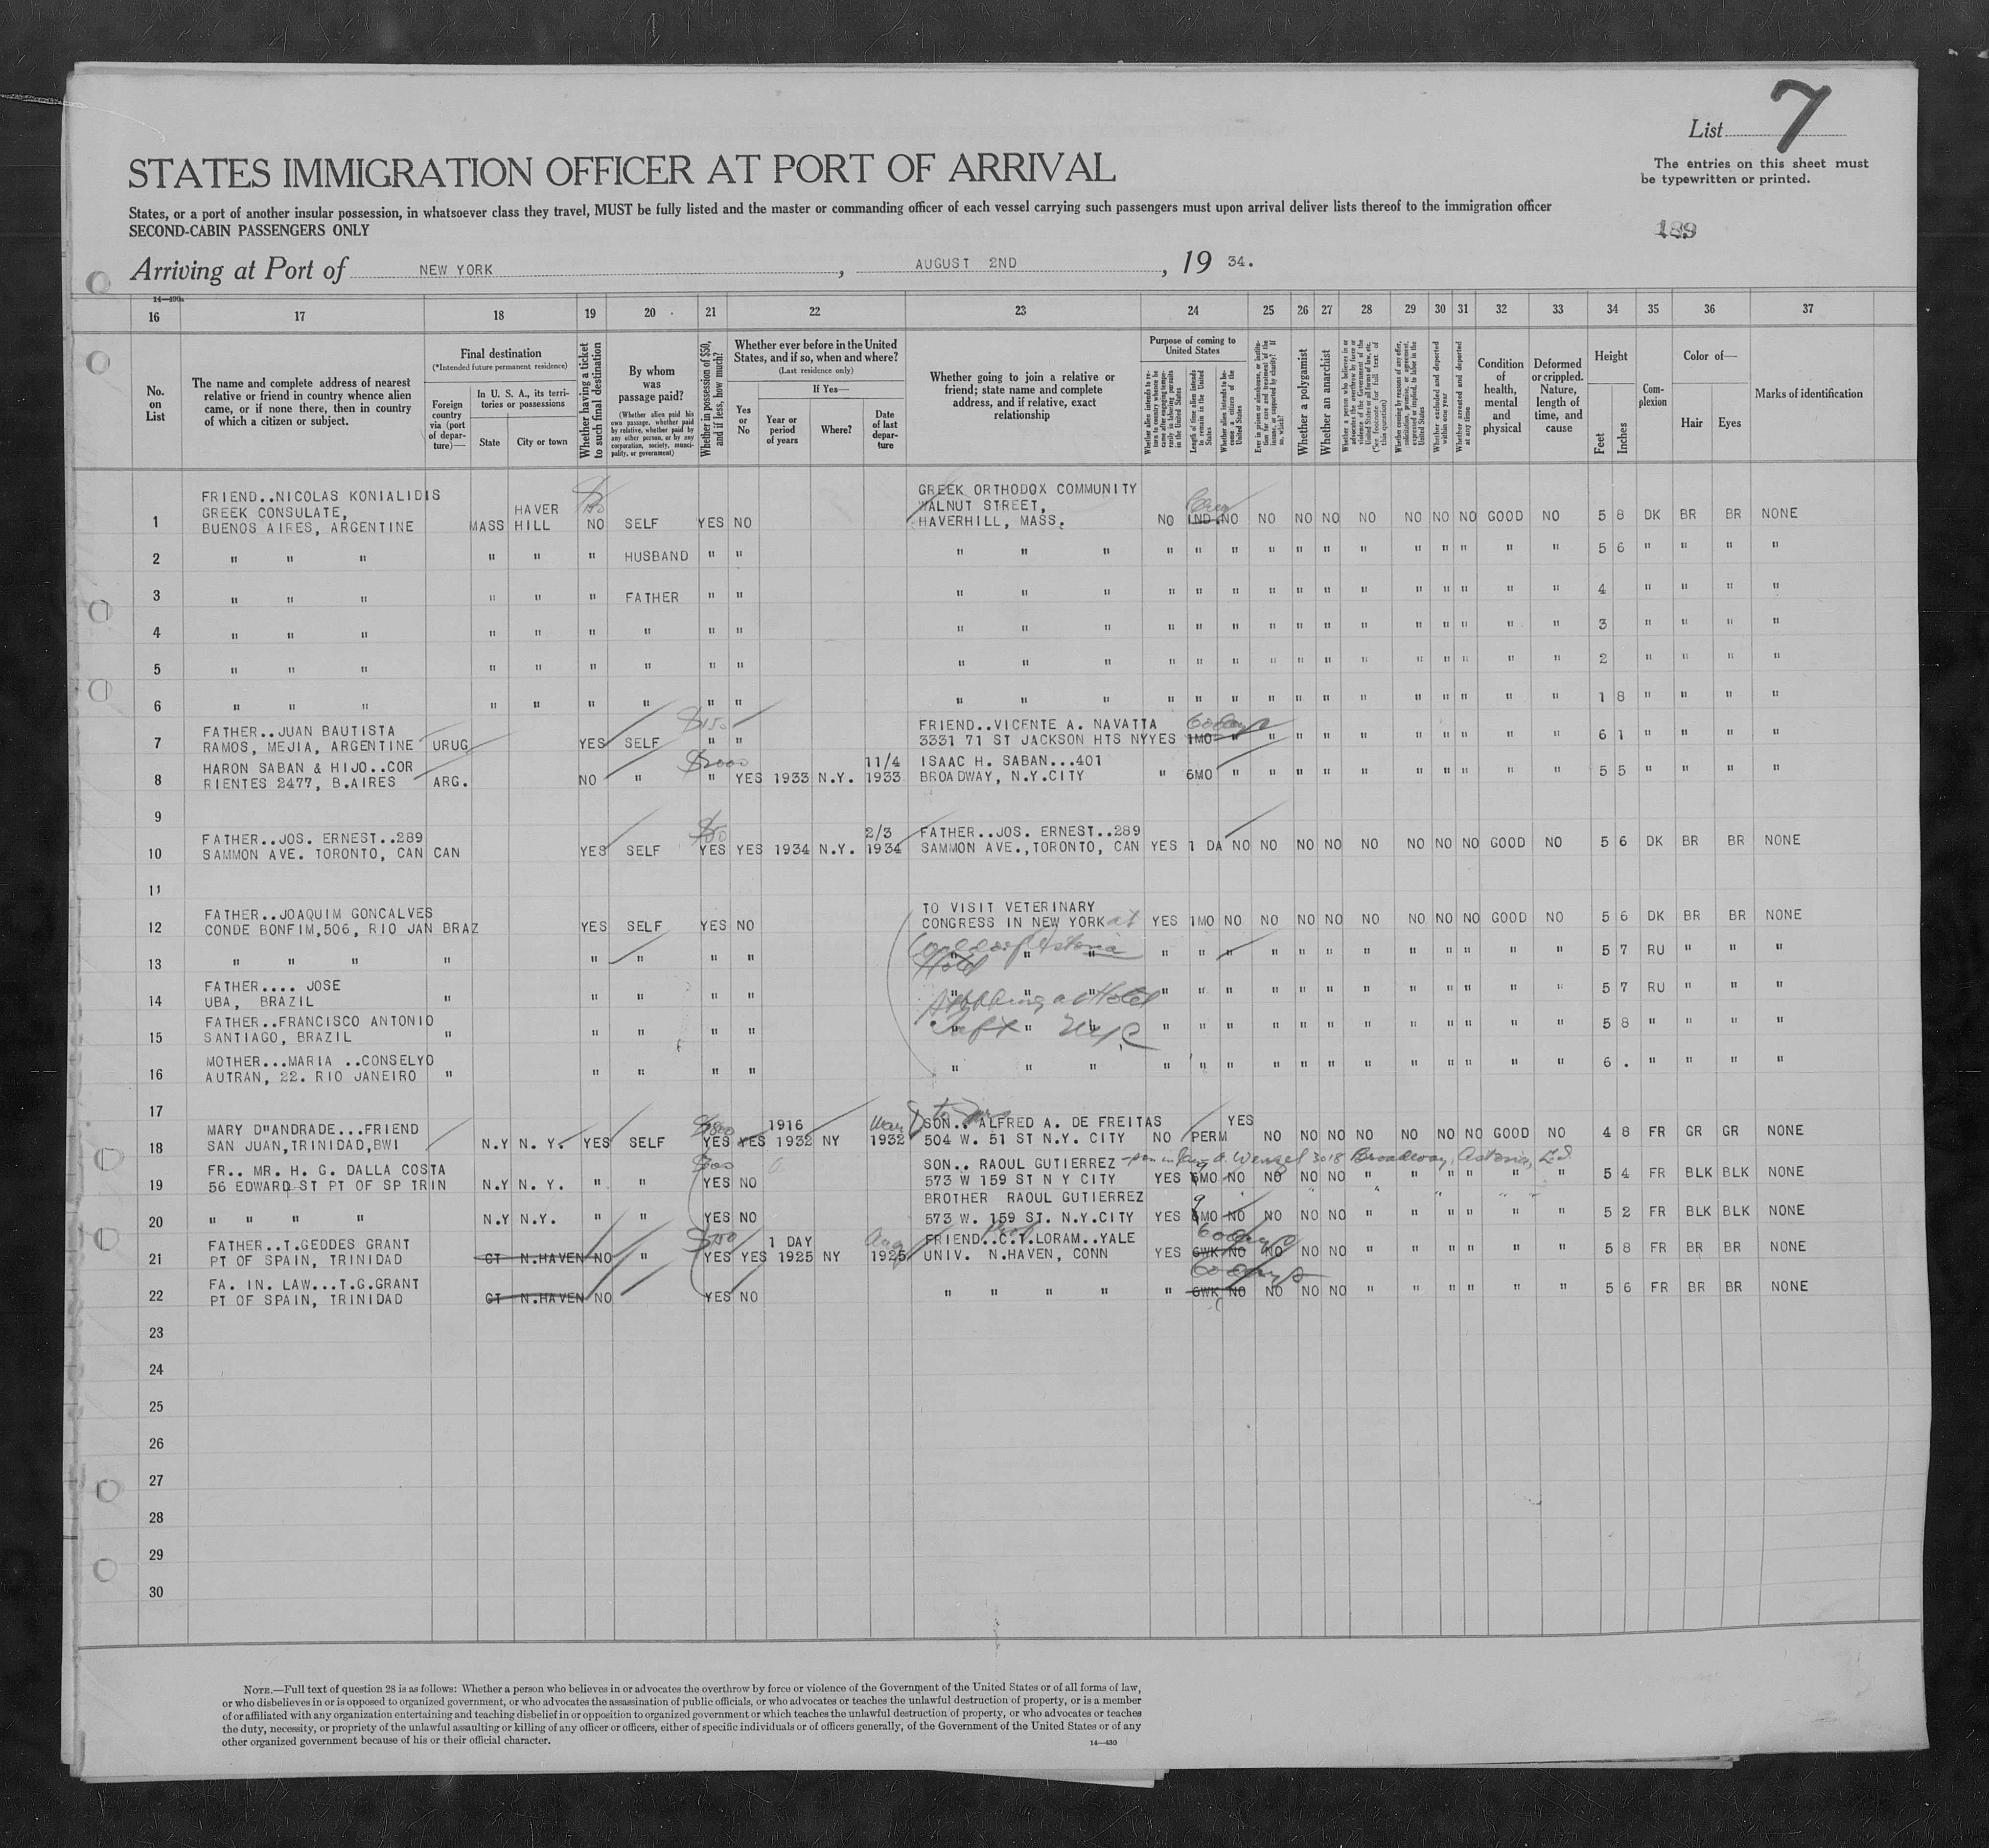 List 7
The entries on this sheet must
be typewritten or printed.
STATES IMMIGRATION OFFICER AT PORT OF ARRIVAL
States, or a port of another insular possession, in whatsoever class they travel, MUST be fully listed and the master or commanding officer of each vessel carrying such passengers must upon arrival deliver lists thereof to the immigration officer
SECOND-CABIN PASSENGERS ONLY
189
Arriving at Port of NEW YORK, AUGUST 2ND, 19 34.
16 17 18 19 20 21 22 23 24 25 26 27 28 29 30 31 32 33 34 35 36 37
No. on List
The name and complete address of nearest
relative or friend in country whence alien
came, or if none there, then in country
of which a citizen or subject.
Final destination
(*Intended future permanent residence)
Foreign country via (port of departure)—
In U. S. A., its territories or possessions
State City or town
Whether having a ticket to such final destination
By whom was passage paid?
(Whether alien paid his own passage, whether paid by relative, whether paid by any other person, or by any corporation, society, municipality, or government)
Whether in possession of $50, and if less, how much?
Whether ever before in the United
States, and if so, when and where?
(Last residence only)
Yes or No
If Yes—
Year or period of years
Where?
Date of last departure
Whether going to join a relative or
friend; state name and complete
address, and if relative, exact
relationship
Purpose of coming to United States
Length of time alien intends to remain in the United States
Whether alien intends to become a citizen of the United States
Whether a polygamist
Whether an anarchist
Whether excluded and deported within one year
Whether arrested and deported at any time
Condition of health, mental and physical
Deformed or crippled. Nature, length of time, and cause
Height
Feet Inches
Complexion
Color of—
Hair Eyes
Marks of identification
FRIEND..NICOLAS KONIALIDIS GREEK ORTHODOX COMMUNITY
GREEK CONSULATE, HAVER WALNUT STREET,
1 BUENOS AIRES, ARGENTINE MASS HILL NO SELF YES NO HAVERHILL, MASS. NO IND. NO NO NO NO NO NO NO NO GOOD NO 5 8 DK BR BR NONE
2 " " " " " " HUSBAND " " " " " " " " " " " " " " " " " 5 6 " " " "
3 " " " " " " FATHER " " " " " " " " " " " " " " " " " 4 " " " "
4 " " " " " " " " " " " " " " " " " " " " " " " " 3 " " " "
5 " " " " " " " " " " " " " " " " " " " " " " " " 2 " " " "
6 " " " " " " " " " " " " " " " " " " " " " " " " 1 8 " " " "
FATHER..JUAN BAUTISTA $150 FRIEND..VICENTE A. NAVATTA 60 days
7 RAMOS, MEJIA, ARGENTINE URUG YES SELF " " 3331 71 ST JACKSON HTS NY YES 1MO " " " " " " " " " " 6 1 " " " "
HARON SABAN & HIJO..COR $2000 11/4 ISAAC H. SABAN...401
8 RIENTES 2477, B.AIRES ARG. NO " " YES 1933 N.Y. 1933 BROADWAY, N.Y.CITY " 6MO " " " " " " " " " " 5 5 " " " "
9
FATHER..JOS. ERNEST..289 2/3 FATHER..JOS. ERNEST..289
10 SAMMON AVE. TORONTO, CAN CAN YES SELF YES YES 1934 N.Y. 1934 SAMMON AVE.,TORONTO, CAN YES 1 DA NO NO NO NO NO NO NO NO GOOD NO 5 6 DK BR BR NONE
11
FATHER..JOAQUIM GONCALVES TO VISIT VETERINARY
12 CONDE BONFIM,506, RIO JAN BRAZ YES SELF YES NO CONGRESS IN NEW YORK at YES 1MO NO NO NO NO NO NO NO NO GOOD NO 5 6 DK BR BR NONE
Astoria
13 " " " " " " " " " " " " " " " " " " " " " " " 5 7 RU " " "
Hotel
FATHER.... JOSE
14 UBA, BRAZIL " " " " " " " " " " " " " " " " " " " 5 7 RU " " "
Stopping at Hotel
FATHER..FRANCISCO ANTONIO
15 SANTIAGO, BRAZIL " " " " " " " " " " " " " " " " " " " 5 8 " " " "
Taft NYC
MOTHER...MARIA ..CONSELYO
16 AUTRAN, 22. RIO JANEIRO " " " " " " " " " " " " " " " " " " " " 6 . " " " "
17
MARY D"ANDRADE...FRIEND $800 1916 SON.. ALFRED A. DE FREITAS YES
18 SAN JUAN,TRINIDAD,BWI N.Y N. Y. YES SELF YES YES 1932 NY 1932 504 W. 51 ST N.Y. CITY NO PERM NO NO NO NO NO NO NO GOOD NO 4 8 FR GR GR NONE
FR.. MR. H. G. DALLA COSTA SON.. RAOUL GUTIERREZ A. Wenzel 3018 Broadway, Astoria, L.I.
19 56 EDWARD ST PT OF SP TRIN N.Y N. Y. " " YES NO 573 W 159 ST N Y CITY YES 6MO NO NO NO NO " " " " " " 5 4 FR BLK BLK NONE
BROTHER RAOUL GUTIERREZ 9
20 " " " " N.Y N.Y. " " YES NO 573 W. 159 ST. N.Y.CITY YES 6MO NO NO NO NO " " " " " " 5 2 FR BLK BLK NONE
FATHER..T.GEDDES GRANT 1 DAY Aug FRIEND..C.T.LORAM..YALE 60 days
21 PT OF SPAIN, TRINIDAD CT N.HAVEN NO " YES YES 1925 NY 1925 UNIV. N.HAVEN, CONN YES 6WK NO NO NO NO " " " " " " 5 8 FR BR BR NONE
FA. IN. LAW...T.G.GRANT 60 days
22 PT OF SPAIN, TRINIDAD CT N.HAVEN NO YES NO " " " " " 6WK NO NO NO NO " " " " " " 5 6 FR BR BR NONE
23
24
25
26
27
28
29
30
NOTE.—Full text of question 28 is as follows: Whether a person who believes in or advocates the overthrow by force or violence of the Government of the United States or of all forms of law,
or who disbelieves in or is opposed to organized government, or who advocates the assassination of public officials, or who advocates or teaches the unlawful destruction of property, or is a member
of or affiliated with any organization entertaining and teaching disbelief in or opposition to organized government or which teaches the unlawful destruction of property, or who advocates or teaches
the duty, necessity, or propriety of the unlawful assaulting or killing of any officer or officers, either of specific individuals or of officers generally, of the Government of the United States or of any
other organized government because of his or their official character.
14—430